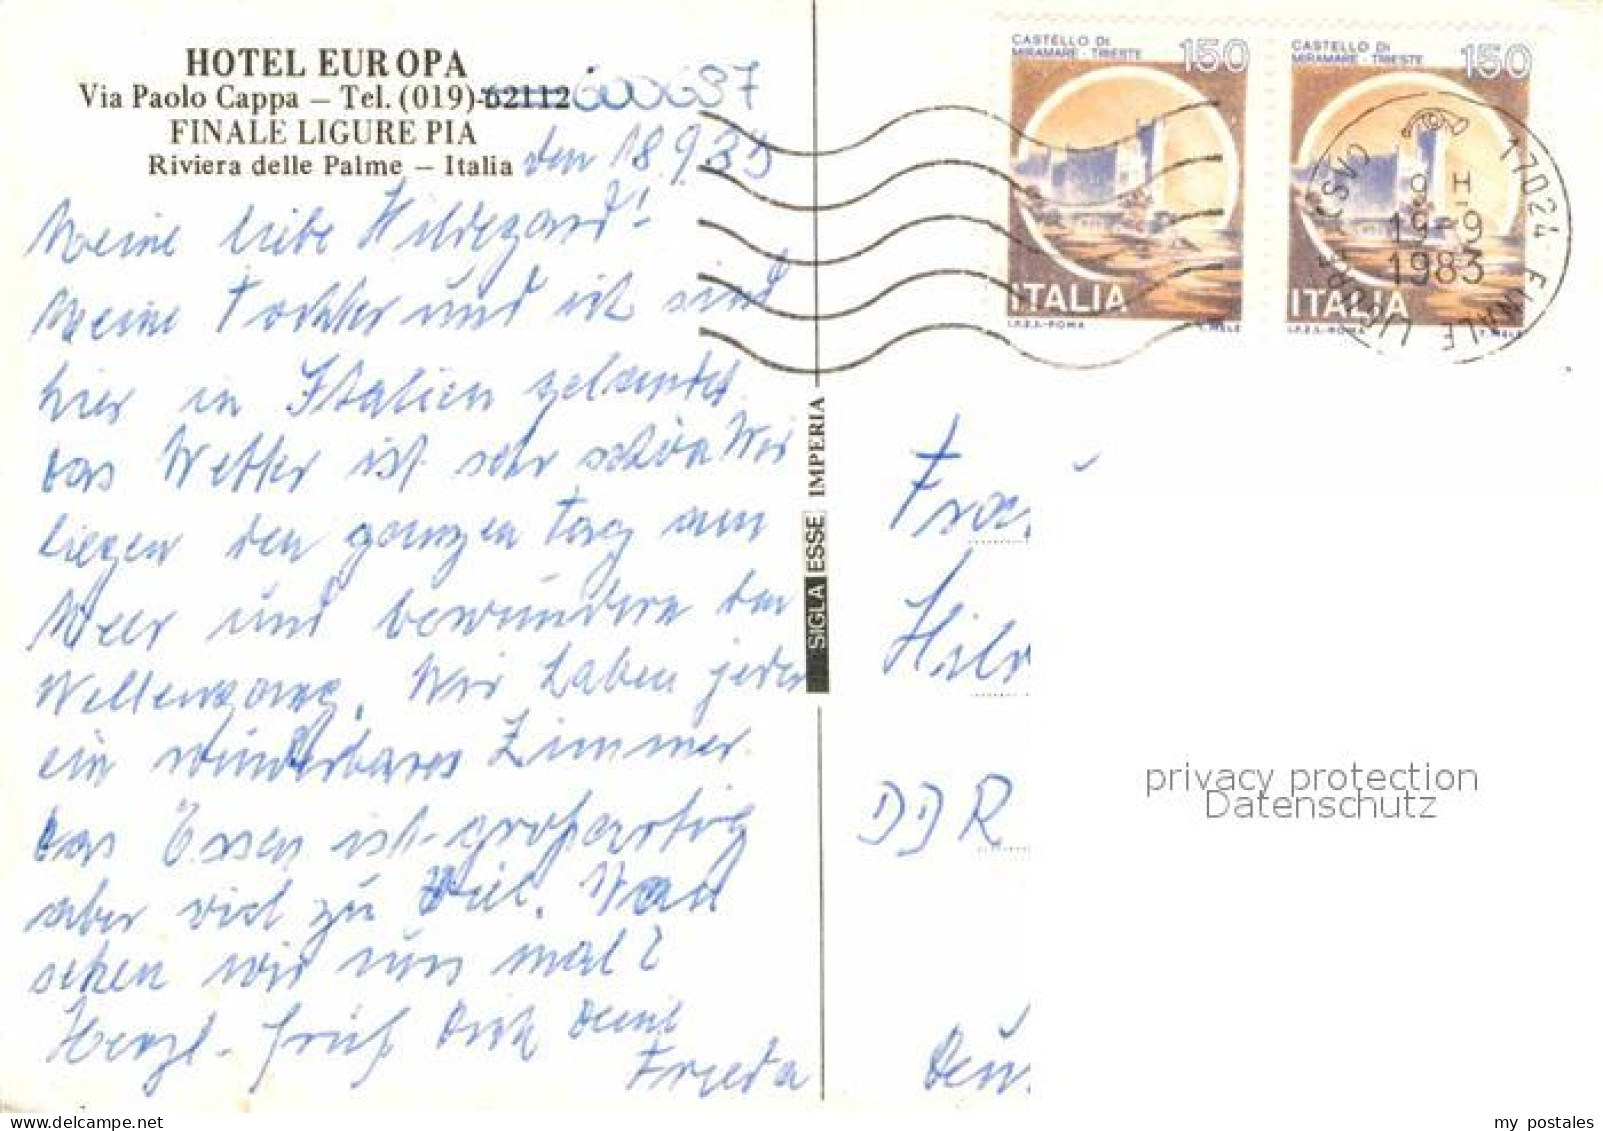 HOTEL EUROPA
Via Paolo Cappa – Tel. (019)-62112 600687
FINALE LIGURE PIA
Riviera delle Palme – Italia
den 18.9.83
Meine liebe Hildegard!
Meine Tochter und ich sind
hier in Italien gelandet.
das Wetter ist sehr schön Wir
liegen den ganzen Tag am
Meer und bewundern den
Wellengang. Wir haben jeder
ein wunderbares Zimmer.
das Essen ist großartig
aber viel zu viel. Wann
sehen wir uns mal?
Herzl. grüßt Dich Deine
Frieda
SIGLA ESSE IMPERIA
CASTELLO DI
MIRAMARE - TRIESTE 150
ITALIA
I.P.Z.S.-ROMA E. MELE
CASTELLO DI
MIRAMARE - TRIESTE 150
ITALIA
I.P.Z.S.-ROMA
17024 FINALE LIGURE
9 H
19-9
1983
Frau
Hild
DDR
privacy protection
Datenschutz
my postales